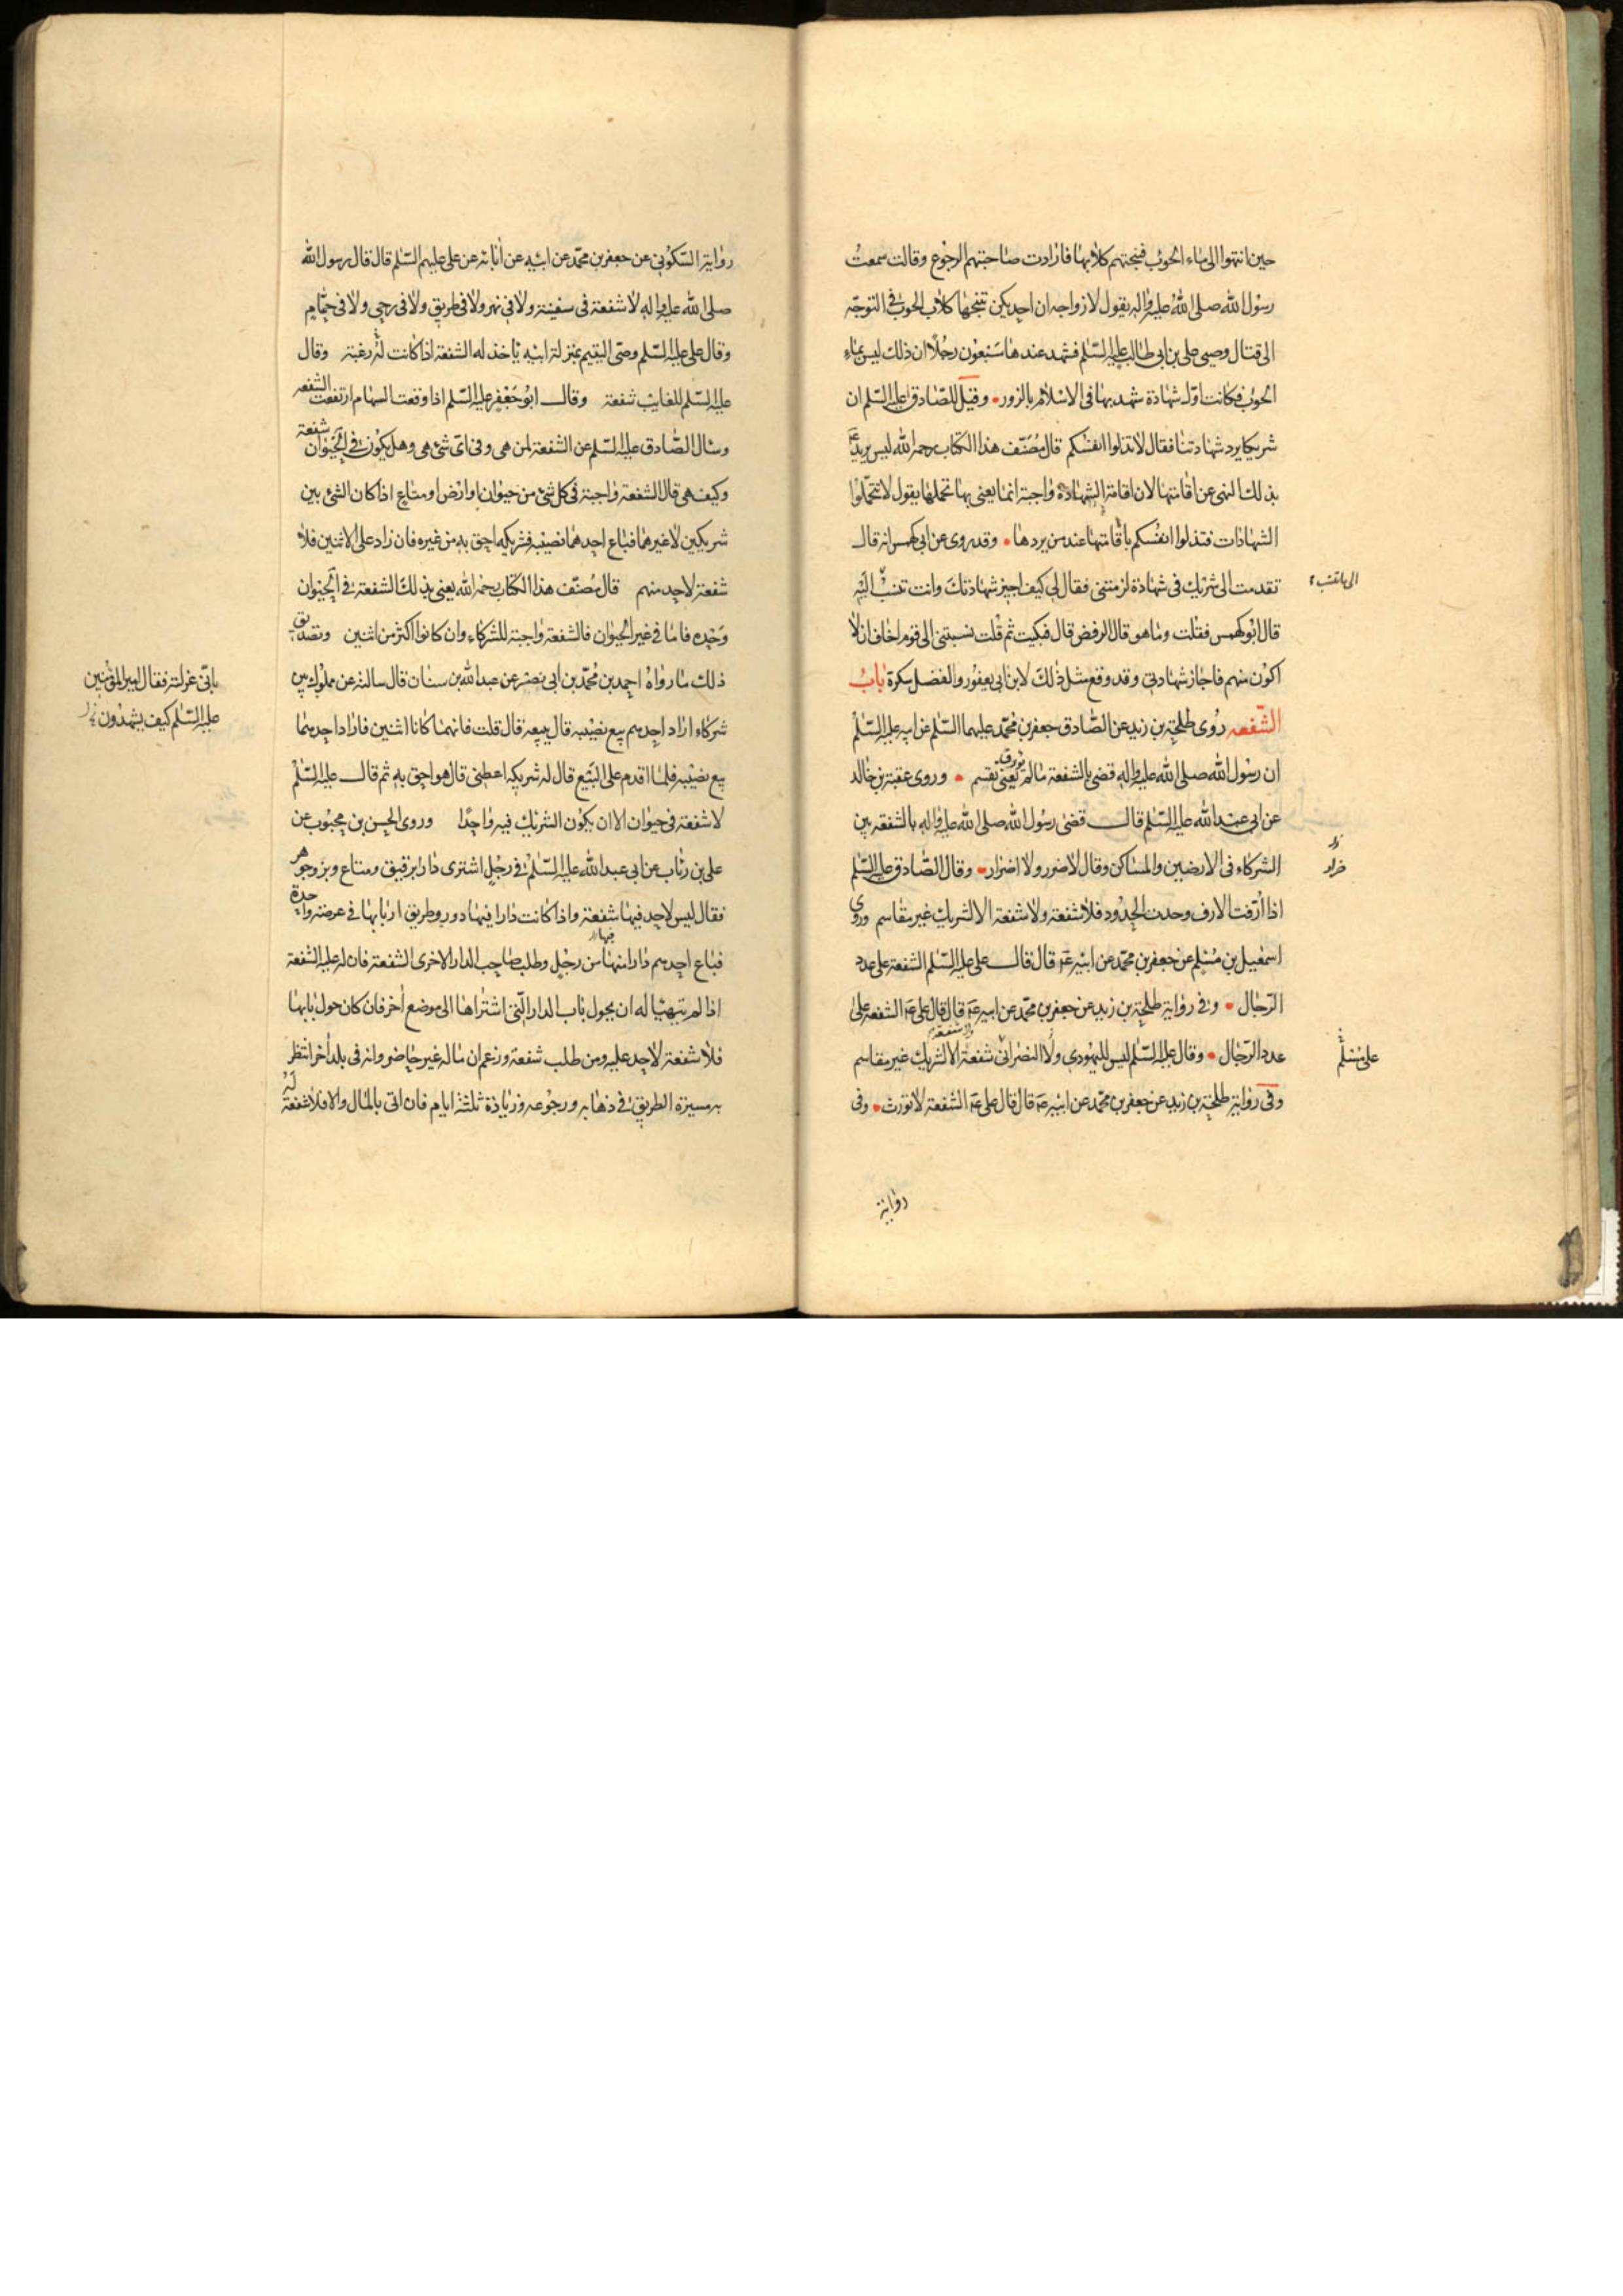 حين انتهوا الى ماء الحوئب فنبحتهم كلابها فارادت صاحبتهم الرجوع وقالت سمعت
رسول الله صلى الله عليه واله يقول لازواجه ان احديكن تنبحها كلاب الحوئب في التوجه
الى قتال وصيى على بن ابى طالب عليه السلم فشهد عندها سبعون رجلا ان ذلك ليس بماء
الحوئب فكانت اول شهادة شهد بها في الاسلام بالزور وقيل للصادق عليه السلم ان
شريكا يرد شهادتنا فقال لا تذلوا انفسكم قال مصنف هذا الكتاب رحمه الله ليس يريد
بذلك النهى عن اقامتها لان اقامة الشهادة واجبة انما يعنى بها تحملها يقول لا تتحملوا
الشهادات فتذلوا انفسكم باقامتها عند من يردها وقد روى عن ابى كهمس انه قال
تقدمت الى شريك في شهادة لزمتنى فقال لى كيف اجيز شهادتك وانت تنسب اليه
الى ما تنسب
قال ابو كهمس فقلت وما هو قال الرفض قال فبكيت ثم قلت نسبتنى الى قوم اخاف ان لا
اكون منهم فاجاز شهادتى وقد وقع مثل ذلك لابن ابى يعفور و الفضل سكرة باب
الشفعه روى طلحة بن زيد عن الصادق جعفر بن محمد عليهما السلم عن ابيه عليه السلم
ان رسول الله صلى الله عليه واله قضى بالشفعة ما لم يعنى تقسم وروى عقبة بن خالد
عن ابى عبد الله عليه السلم قال قضى رسول الله صلى الله عليه واله بالشفعه بين
الشركاء فى الارضين والمساكن وقال لا ضرر ولا اضرار وقال الصادق عليه السلم
اذا ارفت الارف وحدت الحدود فلا شفعة ولا شفعة الا لشريك غير مقاسم وروى
اسمعيل بن مسلم عن جعفر بن محمد عن ابيه ع قال قال على عليه السلم الشفعة على عدد
الرجال وفي رواية طلحة بن زيد عن جعفر بن محمد عن ابيه ع قال قال على ع الشفعه على
عدد الرجال وقال عليه السلم ليس لليهودى ولا النصرانى شفعة الا لشريك غير مقاسم
ولا شفعة
على مسلم
وفى رواية طلحة بن زيد عن جعفر بن محمد عن ابيه ع قال قال على ع الشفعة لا تورث وفى
رواية
رواية السكونى عن جعفر بن محمد عن ابيه عن ابائه عن على عليهم السلم قال قال رسول الله
صلى الله عليه واله لا شفعة فى سفينة ولا فى نهر ولا فى طريق ولا فى رحى ولا فى حمام
وقال على عليه السلم وصى اليتيم بمنزلة ابيه ياخذ له الشفعة اذا كانت له رغبة وقال
عليه السلم للغايب شفعة وقال ابو جعفر عليه السلم اذا وقعت السهام ارتفعت الشفعه
وسال الصادق عليه السلم عن الشفعة لمن هى وفى اى شئ هى وهل يكون فى الحيوان شفعة
وكيف هى قال الشفعة واجبة فى كل شئ من حيوان او ارض او متاع اذا كان الشئ بين
شريكين لا غيرهما فباع احدهما نصيبه فشريكه احق به من غيره فان زاد على الاثنين فلا
شفعة لاحد منهم قال مصنف هذا الكتاب رحمه الله يعنى بذلك الشفعة فى الحيوان
وحده فاما فى غير الحيوان فالشفعة واجبة للشركاء وان كانوا اكثر من اثنين وتصديق
ذلك ما رواه احمد بن محمد بن ابى نصر عن عبد الله بن سنان قال سالته عن مملوك بين
شركاء اراد احدهم بيع نصيبه قال يبيعه قال قلت فانهما كانا اثنين فاراد احدهما
بيع نصيبه فلما اقدم على البيع قال له شريكه اعطنى قال هو احق به ثم قال عليه السلم
لا شفعة فى حيوان الا ان يكون الشريك فيه واحدا وروى الحسن بن محبوب عن
على بن رئاب عن ابى عبد الله عليه السلم فى رجل اشترى دارا برقيق ومتاع وبز وجوهر
فقال ليس لاحد فيها شفعة واذا كانت دارا فيها دور وطريق اربابها فى عرصة واحدة
فباع احدهم دارا منها من رجل وطلب صاحب الدار الاخرى الشفعة فان له عليه الشفعة
فيها
اذا لم يتهيا له ان يحول باب الدار التى اشتراها الى موضع اخر فان كان حول بابها
فلا شفعة لاحد عليه ومن طلب شفعة وزعم ان ماله غير حاضر وانه فى بلد اخر انتظر
به مسيرة الطريق فى ذهابه ورجوعه وزيادة ثلثة ايام فان اتى بالمال والا فلا شفعة له
فقال امير المؤمنين
عليه السلم كيف يشهدون